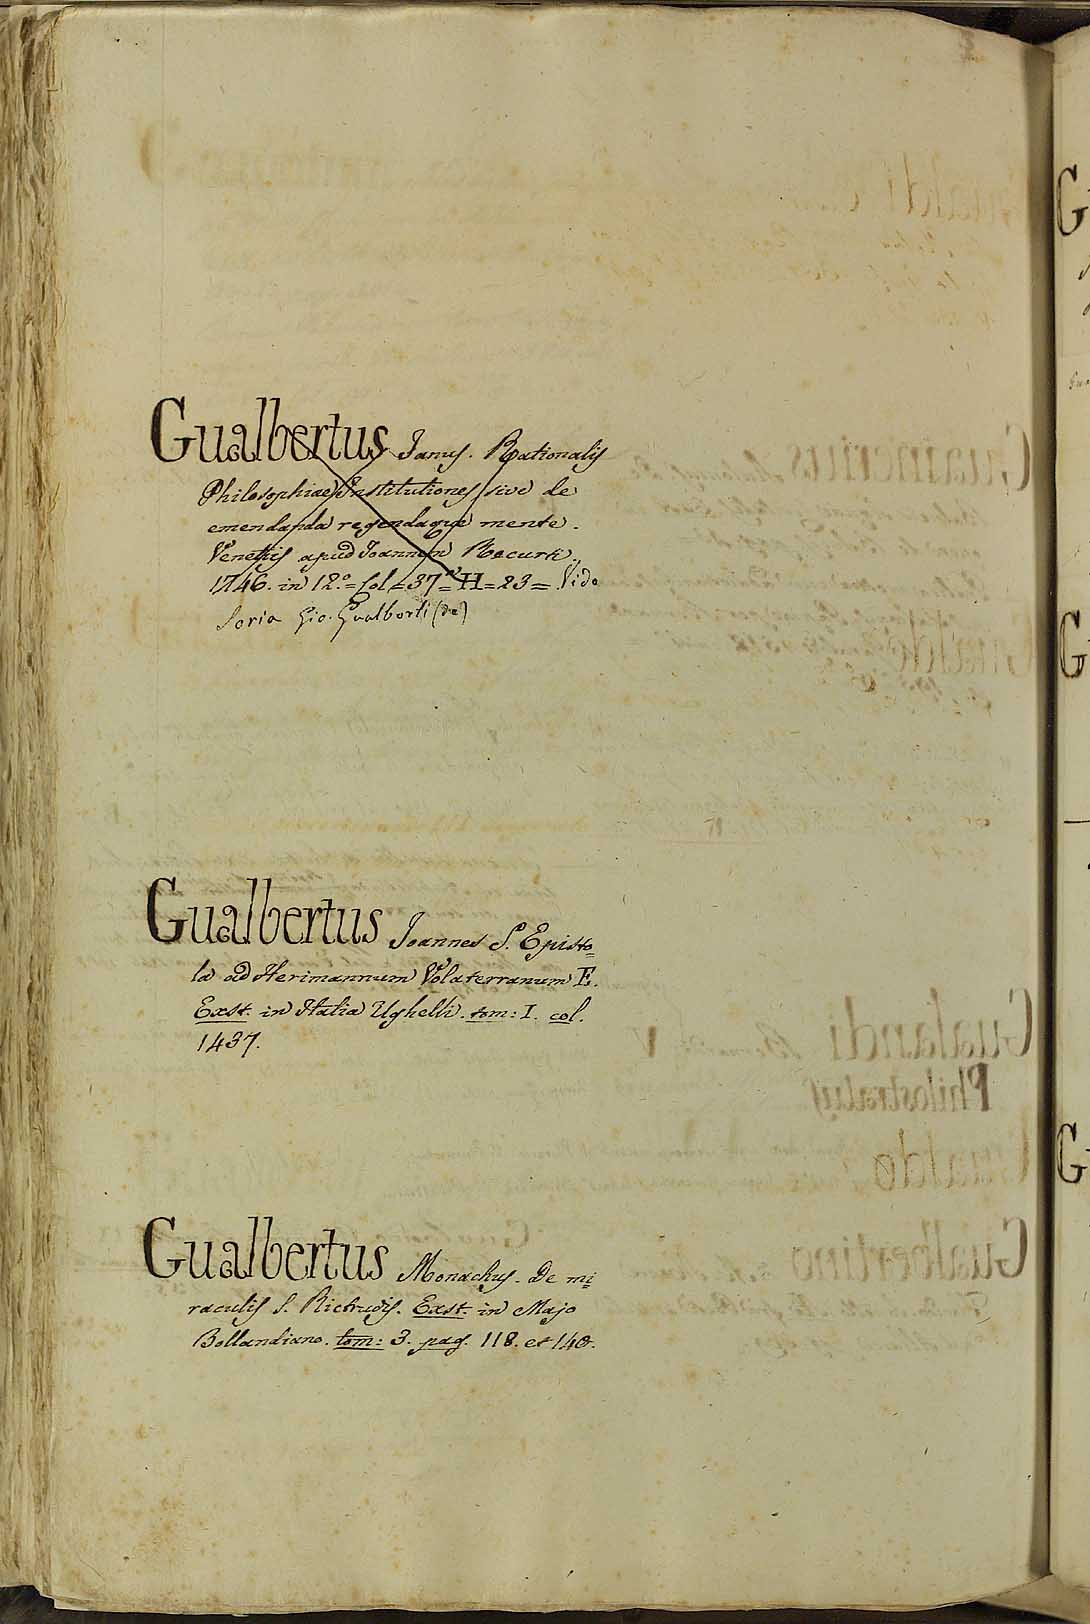 Gualbertus Janus. Rationalis
Philosophiae Institutiones sive de
emendanda regendaque mente.
Venetiis apud Joannem Recurti.
1746. in 12.° = Col = 37 = H = 23 = Vide
Soria Gio. Gualberti (de)
Gualbertus Joannes S. Episto=
la ad Herimannum Volaterranum E.
Exst. in Italia Ughelli. tom: I. col.
1437.
Gualbertus Monachus. De mi=
raculis S. Rictrudis. Exst. in Majo
Bollandiano. tom: 3. pag. 118. et 140.